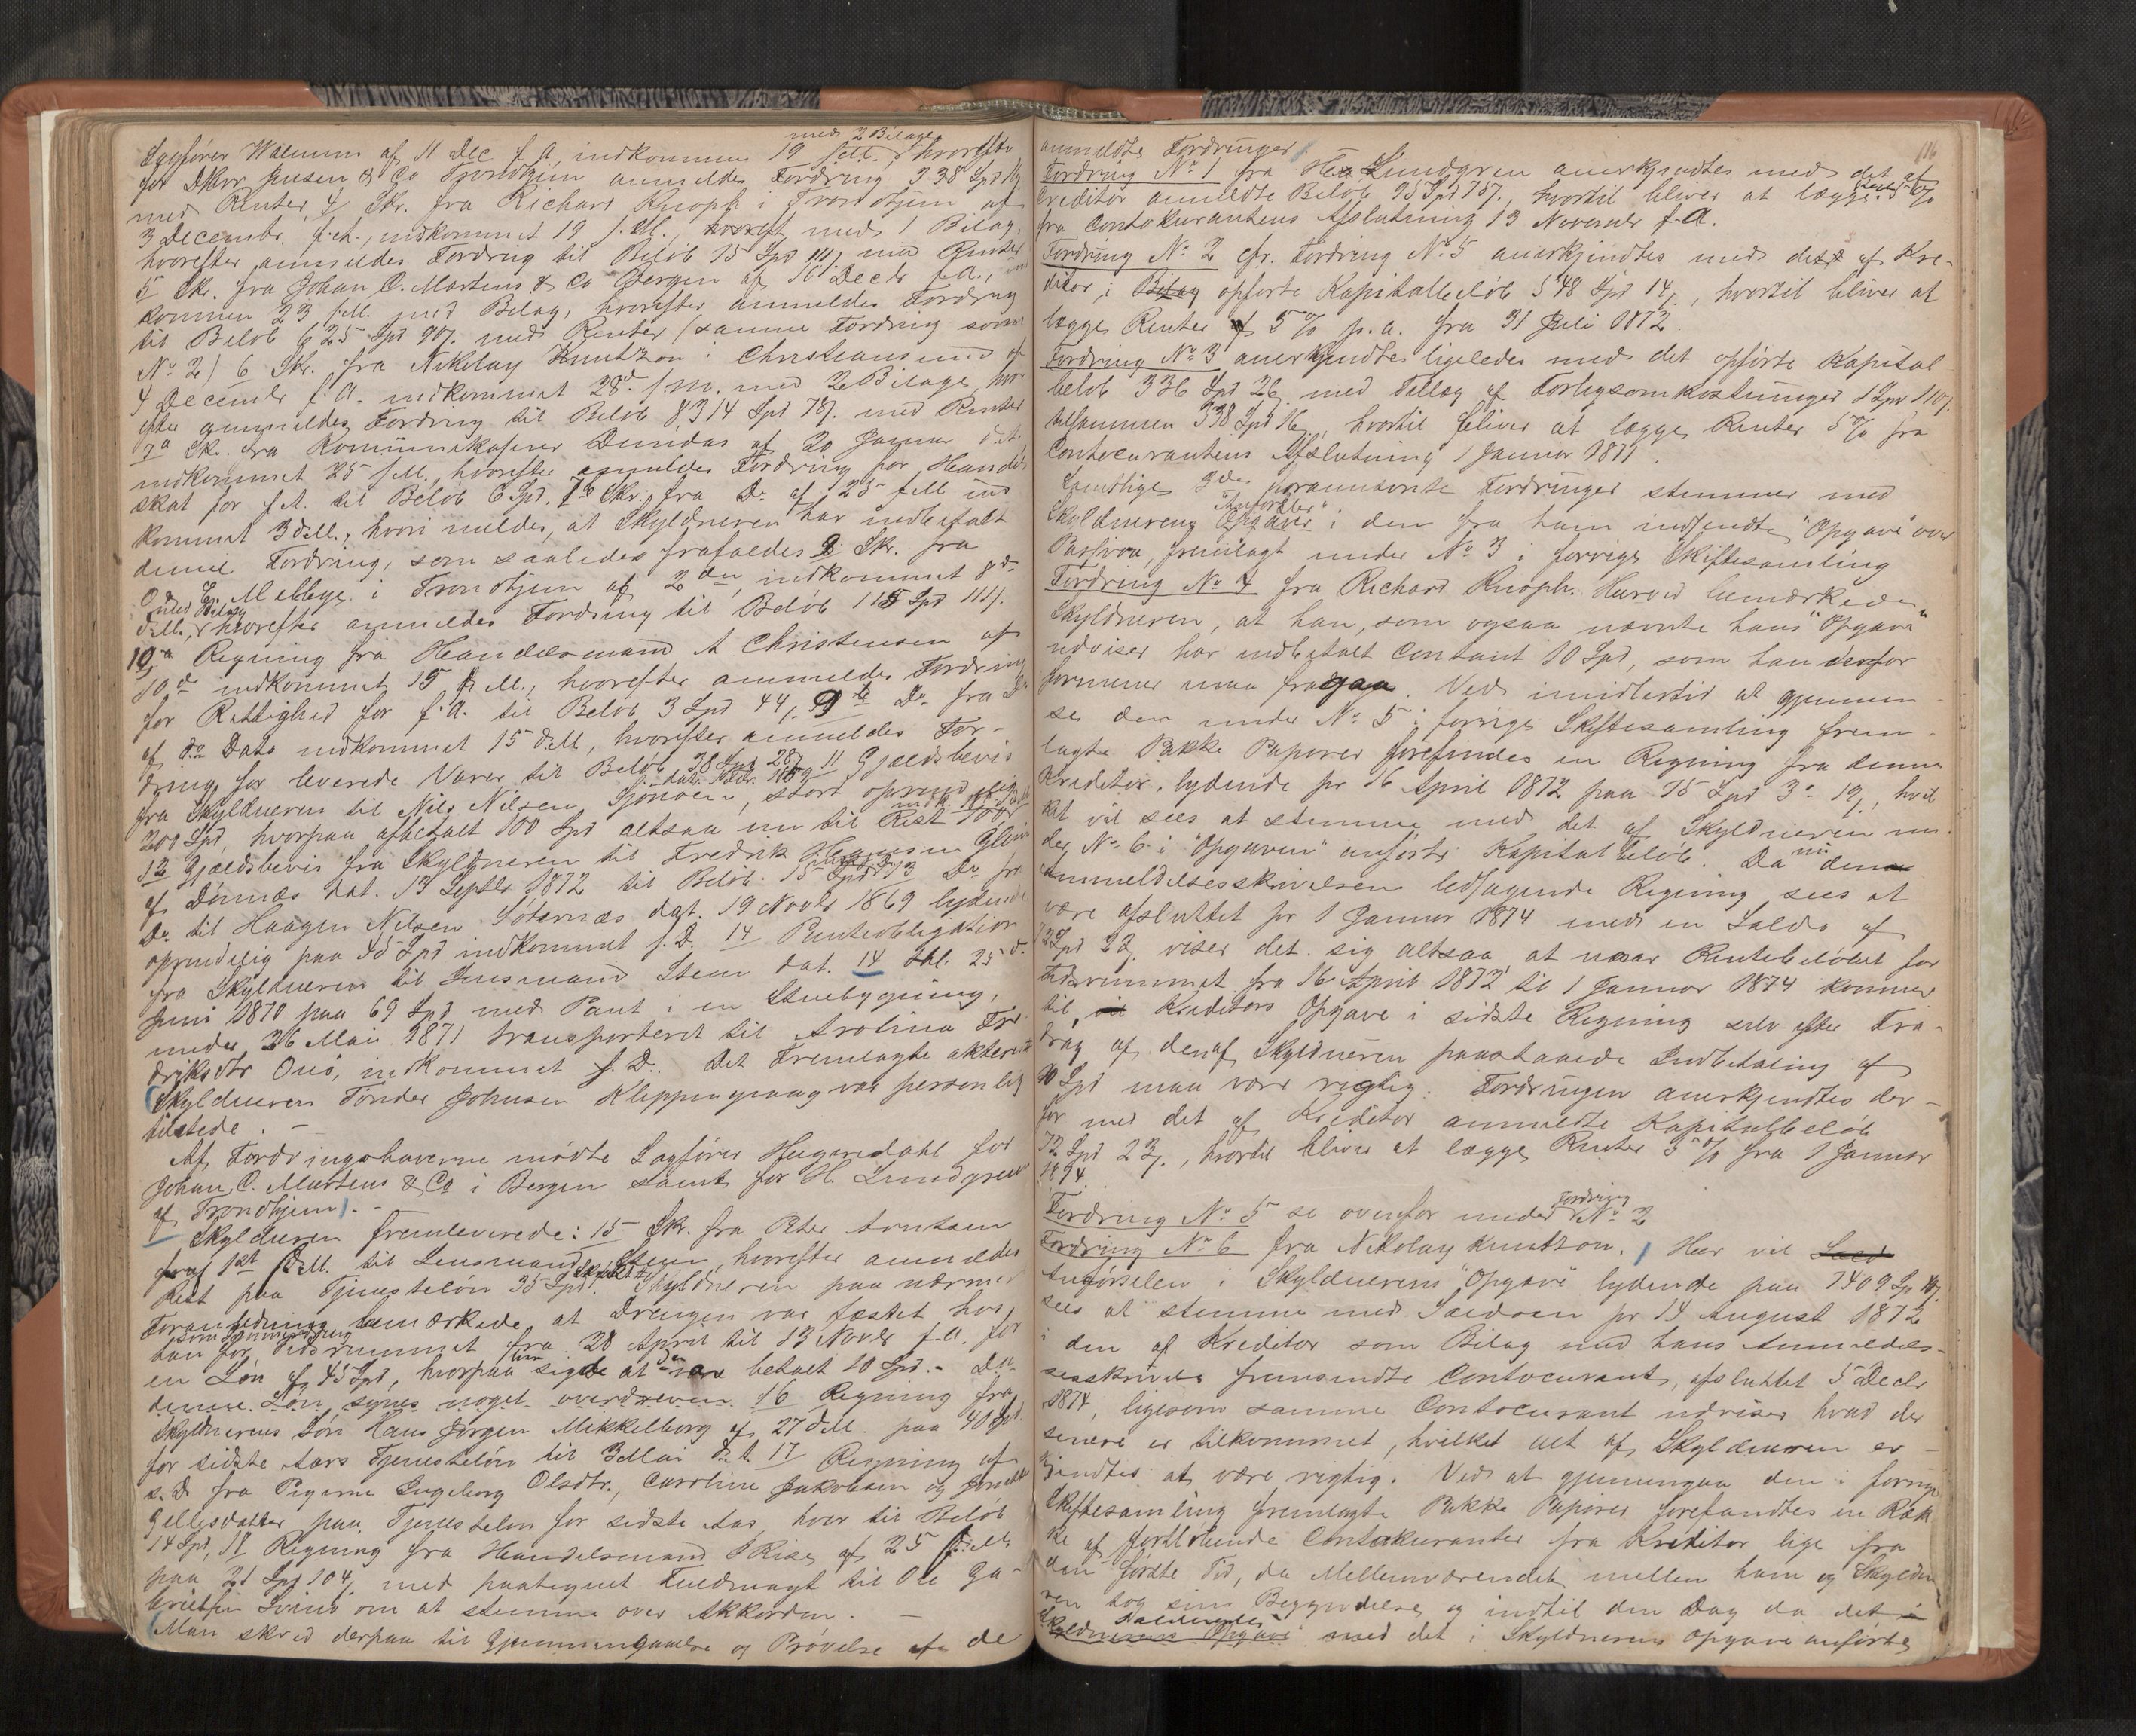 med 2 Bilage
Sagfører Walnum af 11 Dec f. A. indkommen 19 s. M. hvorefter
for DHrr Jensen & Co Trondhjem anmeldes Fordring 338 Spd 16
med Renter, 4 Skr. fra Richard Knoph i Trondhjem af
3 Decembr. f. A., indkommet 19 s. M., med 1 Bilag,
hvorefter anmeldes Fordring til Beløb 75 Spd med Renter
5 Skr. fra Johan C. Martens & Co Bergen af 10 Decb f. A., ind
kommen 23 s. M. med Bilag, hvorefter anmeldes Fordring
til Beløb 625 Spd 90 med Renter (samme Fordring som
No 2) 6 Skr. fra Nikolay Knutzon i Christiansund af
4 Decembr f. A. indkommet 28de s. M. med 2 Bilage, hvor
efter anmeldes Fordring til Beløb 8314 Spd 78 med Renter
7a Sk. fra Kommunekasserer Dundas af 20 Januar d. A.
indkommet 25 s. M., hvorefter anmeldes Fordring for Handels
skat for f. A. til Beløb 6 Spd. 7b Skr. fra Do af 25 s. M ind
kommet 3 d. M., hvori meldes, at Skyldneren har indbetalt
denne Fordring, som saaledes frafaldes 8 Skr. fra
O. E. Mellbye i Trondhjem af 2den, indkommet 8de
med Bilag
d. M., hvorefter anmeldes Fordring til Beløb 115 Spd 111
10a Regning fra Handelsmand A Christensen af
10de indkommet 15 d. M., hvorefter anmeldes Fordring
for Rettighed for f. A. til Beløb 3 Spd 44, 9b Do fra Do
af do Dato indkommet 15 d. M, hvorefter anmeldes For-
dring for leverede Varer til Beløb 28 Spd 28 11 Gjældsbevis
fra Skyldneren til Nils Nilsen Sjönøen, stort oprindelig
200 Spd, hvorpaa afbetalt 100 Spd altsaa nu til Rest 100
12 Gjældsbevis fra Skyldneren til Fredrik Hansen
af Dønnæs dat. 13 Septbr 1872 til Beløb 15 Spd 13 Do fra
Do til Haagen Nilsen Söternæs dat. 19 Novbr 1869 lydende
oprindelig paa 45 Spd indkommet s. D. 14 Panteobligation
fra Skyldneren til Lensmand Stem dat. 14 tbl. 25de
Juni 1870 paa 69 Spd med Pant i en Stuebygning,
under 26 Mai 1871 transporteret til Arolina Fre
driksdtr Onö, indkommet s. D. Det Fremlagte akteres
Skyldneren Tönder Johnsen Kleppingvaag var personlig
tilstede. –
Af Fordringshaverne mødte Sagfører Hegerdahl for
Johan C. Martens & Co i Bergen samt for H. Lundgreen
af Trondhjem. –
Skyldneren fremleverede: 15 Skr. fra Peter Arntsen
af 1ste d. M. til Lensmand Stem, hvorefter anmeldes
Rest paa Tjenesteløn 35 Spd. Skyldneren paa nærmere
Foranledning bemærkede, at Drengen var fæstet hos
som Sommerdreng
ham for Tidsrummet fra 28 April til 13 Novbr f. A. for
en Løn af 45 Spd, hvorpaa sigde at være betalt 10 Spd. –
denne Løn synes noget overdreven 16 Regning fra
Skyldnerens Søn Hans Jørgen Mikkelborg af 27 d. M. paa 40 Spd
for sidste Aars Tjenesteløn til 3 Mai d. A. 17 Regning af
s. D fra Pigerne Ingeborg Olsdtr., Caroline Jakobsen og
Gellisdatter paa Tjenesteløn for sidste Aar, hver til Beløb
14 Spd, 18 Regning fra Handelsmand Rise af 25 d. M.
paa 21 Spd 104 med paategnet Fuldmagt til Ole Ga-
brielsen om at stemme over Akkorden. –
Man skred derpaa til Gjennemgaaelse og Prøvelse af de
116
anmeldte Fordringer
Fordring No 1 fra H. Lundgren anerkjendtes med det af
Creditor anmeldte Beløb 95 Spd 75, hvortil bliver at lægge 5 %
fra Contokurantens Afslutning 13 November f. A.
Fordring No 2 cfr. Fordring No 5 anerkjendtes med det af Kre-
ditor i Bilag opførte Kapitalbeløb 548 Spd 14, hvortil bliver at
lægge Renter af 5 % p. a. fra 31 Juli 1872.
Fordring No 3 anerkjendtes ligeledes med det opførte Kapital
beløb 336 Spd 26 med Tillæg af Forligsomkostninger 1 Spd 110
tilsammen 338 Spd 16, hvortil bliver at lægge Renter 5 % fra
Contocurantens Afslutning 1 Januar 1871.
Samtlige 3de forannævnte Fordringer stemmer med
Skyldnerens Opgaver i den fra ham indsendte "Opgave" over
Passiva, fremlagt under No 3 i forrige Skiftesamling
Fordring No 4 fra Richard Knoph. Herved bemærkede
Skyldneren, at han, som ogsaa nævnte hans "Opgave"
udviser har indbetalt Contant 10 Spd, som han derfor
formener maa fragaa. Ved imidlertid at gjennem-
se den under No 5 i forrige Skiftesamling frem-
lagte Pakke Papirer forefindes en Regning fra denne
Kreditor, lydende pr 16 April 1872 paa 75 Spd 3 19, hvil
ket vil sees at stemme med det af Skyldneren un-
der No 6 i "Opgaven" anførte Kapitalbeløb. Da nu den
Anmeldelsesskrivelsen ledsagende Regning sees at
være afsluttet pr 1 Januar 1874 med en Saldo af
72 Spd 23 viser det sig altsaa, at naar Rentebeløbet for
Tidsrummet fra 16 April 1872 til 1 Januar 1874 kommer
til, Kreditors Opgave i sidste Regning selv efter Fra-
drag af den af Skyldneren paastaaede Indbetaling af
10 Spd maa være rigtig. Fordringen anerkjendtes der-
for med det af Kreditor anmeldte Kapitalbeløb
72 Spd 23, hvortil bliver at lægge Renter 5 % fra 1 Januar
1874.
Fordring No 5 se ovenfor under Fordring No 2
Fordring No 6 fra Nikolay Knutzon. Her vil
Anførselen i Skyldnerens "Opgave" lydende paa 7409 Sp
sees at stemme med Saldoen pr 14 August 1872
i den af Kreditor som Bilag med hans Anmeldel-
sesskrivelse fremsendte Contocurant, afsluttet 5 Decbr
1874, ligesom samme Contocurant udviser hvad der
senere er tilkommet, hvilket alt af Skyldneren er-
kjendtes at være rigtig. Ved at gjennemgaa den i forrige
Skiftesamling fremlagte Pakke Papirer forefandtes en Ræk
ke af fortløbende Contokuranter fra Kreditor lige fra
den første Tid, da Mellemværendet mellem ham og Skyldne
ren tog sin Begyndelse og indtil den Dag da det
Skyldnerens Opgave med det i Skyldnerens Opgave anførte